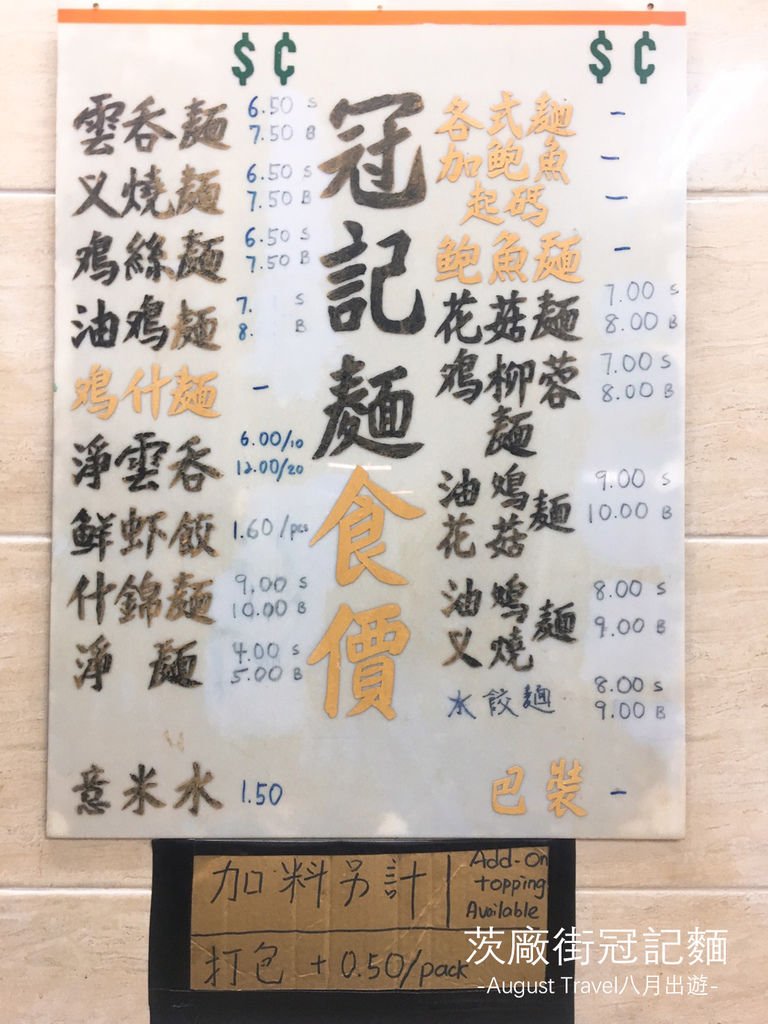 $ ¢
雲吞麵 6.50 S
7.50 B
义燒麵 6.50 S
7.50 B
鸡絲麵 6.50 S
7.50 B
油鸡麵 7. S
8. B
鸡什麵 -
淨雲吞 6.00/10
12.00/20
鮮虾餃 1.60/pcs
什錦麵 9.00 S
10.00 B
淨麵 4.00 S
5.00 B
意米水 1.50
冠記麵食價
$ ¢
各式麵 -
加鲍魚 -
起码 -
鲍魚麵 -
花菇麵 7.00 S
8.00 B
鸡柳蓉 7.00 S
麵 8.00 B
油鸡花菇麵 9.00 S
10.00 B
油鸡义燒麵 8.00 S
9.00 B
水餃麵 8.00 S
9.00 B
巴裝 -
加料另計
Add-On
topping
Available
打包 + 0.50/pack
茨廠街冠記麵
-August Travel八月出遊-